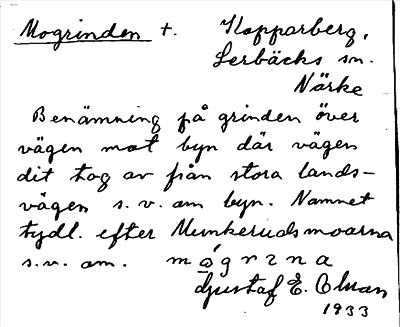 Mogrinden +. Kopparberg,
Lerbäcks sn.
Närke
Benämning på grinden över
vägen mot byn där vägen
dit tog av från stora lands-
vägen s.v. om byn. Namnet
tydl. efter Munkerudsmoarna
s.v. om. mögrna
Gustaf E. Olsson
1933